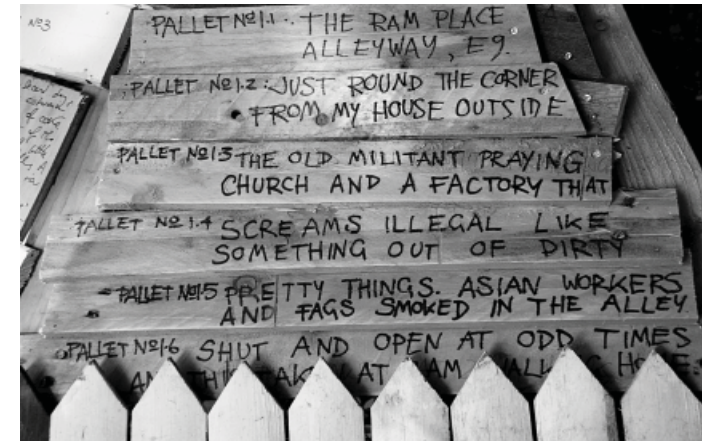 Nº3
PALLET Nº1.1 . THE RAM PLACE
ALLEYWAY, E9.
PALLET Nº1.2 : JUST ROUND THE CORNER
FROM MY HOUSE OUTSIDE
PALLET Nº1.3 THE OLD MILITANT PRAYING
CHURCH AND A FACTORY THAT
PALLET Nº 1.4 SCREAMS ILLEGAL LIKE
SOMETHING OUT OF DIRTY
PALLET Nº1.5 PRETTY THINGS. ASIAN WORKERS
AND FAGS SMOKED IN THE ALLEY
PALLET Nº1.6 SHUT AND OPEN AT ODD TIMES
AT